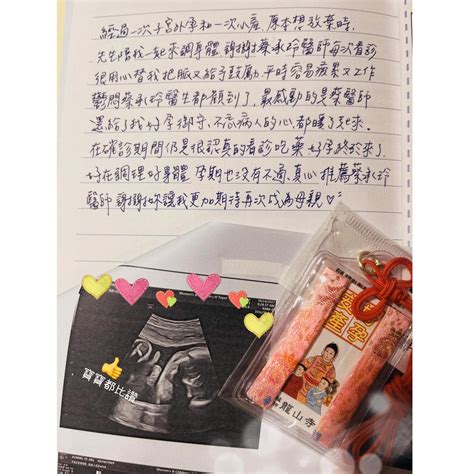 經過一次子宮外孕和一次小產,原本想放棄時,
先生陪我一起來調身體,謝謝蔡承玲醫師每次看診
很用心替我把脈又給予鼓勵,平時容易疲累又工作
鬱悶蔡承玲醫生都顧到了,最感動的是蔡醫師
還給了我好孕御守,不底病人的心都暖了起來.
在確診期間仍是很認真的看診吃藥 好孕終於來了.
好在調理好身體,孕期也沒有不適,真心推薦蔡承玲
醫師 謝謝妳讓我更加期待再次成為母親
寶寶都比讚
龍山寺